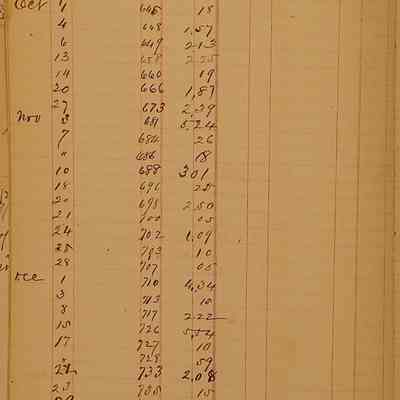 Oct 4 646 18
4 648 1,57
6 649 2 13
13 658 2 25
14 660 19
20 666 1,87
27 673 2,39
Nov 3 681 5,24
7 684 26
" 686 18
10 688 3 01
18 696 25
20 698 2,50
21 700 05
24 702 1,09
25 703 10
28 707 05
Dec 1 710 4,34
3 713 10
8 717 2 22
15 726 5,54
17 727 10
" 728 59
22 733 2,08
23 735 15